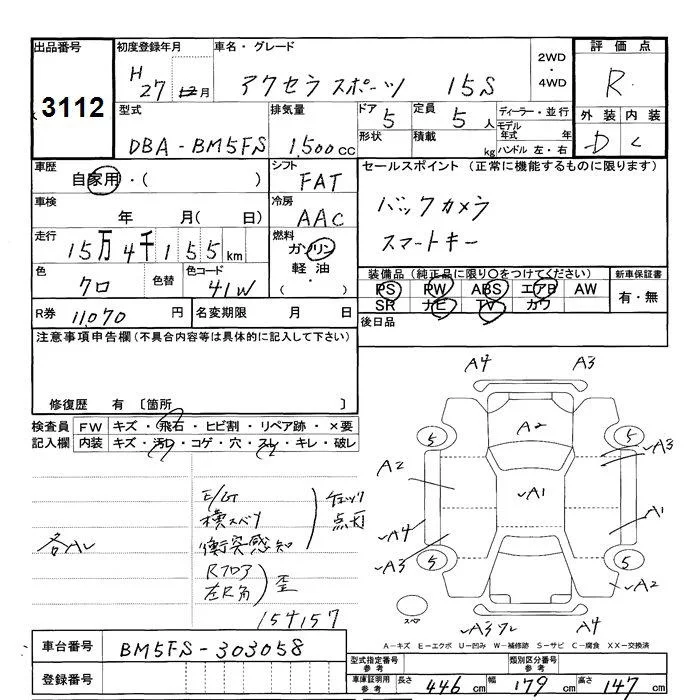 出品番号 初度登録年月 車名・グレード 評価点
3112 H27年12月 アクセラスポーツ 15S 2WD・4WD R
型式 排気量 ドア 定員 ディーラー・並行 外装 内装
DBA-BM5FS 1,500cc 5 5人 モデル年式 年 D C
形状 積載 kg ハンドル 左・右
車歴 シフト セールスポイント(正常に機能するものに限ります)
自家用・( ) FAT
車検 冷房 バックカメラ
年 月( 日) AAC スマートキー
走行 燃料
15万4千155km ガソリン
軽油・( )
色 色替 色コード 装備品(純正品に限り○をつけてください) 新車保証書
クロ 41W PS PW ABS エアB AW 有・無
SR ナビ TV カワ
R券 11,070円 名変期限 月 日 後日品
注意事項申告欄(不具合内容等は具体的に記入して下さい)
修復歴 有 〔箇所 〕
検査員記入欄 FW キズ・飛石・ヒビ割・リペア跡・×要
内装 キズ・汚れ・コゲ・穴・スレ・キレ・破レ
A4 A3
A2
5 5
A3
A2 A1
A4 A1
A3
5 5
A2
スペア A3 A4
E/G 横スベリ 衝突感知 チェック点灯
Rフロア 左R角 歪
154157
A-キズ E-エクボ U-凹み W-補修跡 S-サビ C-腐食 XX-交換済
車台番号 BM5FS-303058
登録番号
型式指定番号参考 類別区分番号参考
車庫証明用参考 長さ 446cm 幅 179cm 高さ 147cm